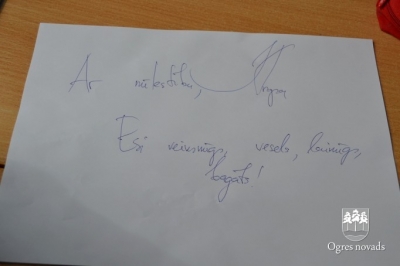 Ar
Esi veiksmīgs, vesels, laimīgs,
bagāts!
Ogres novads